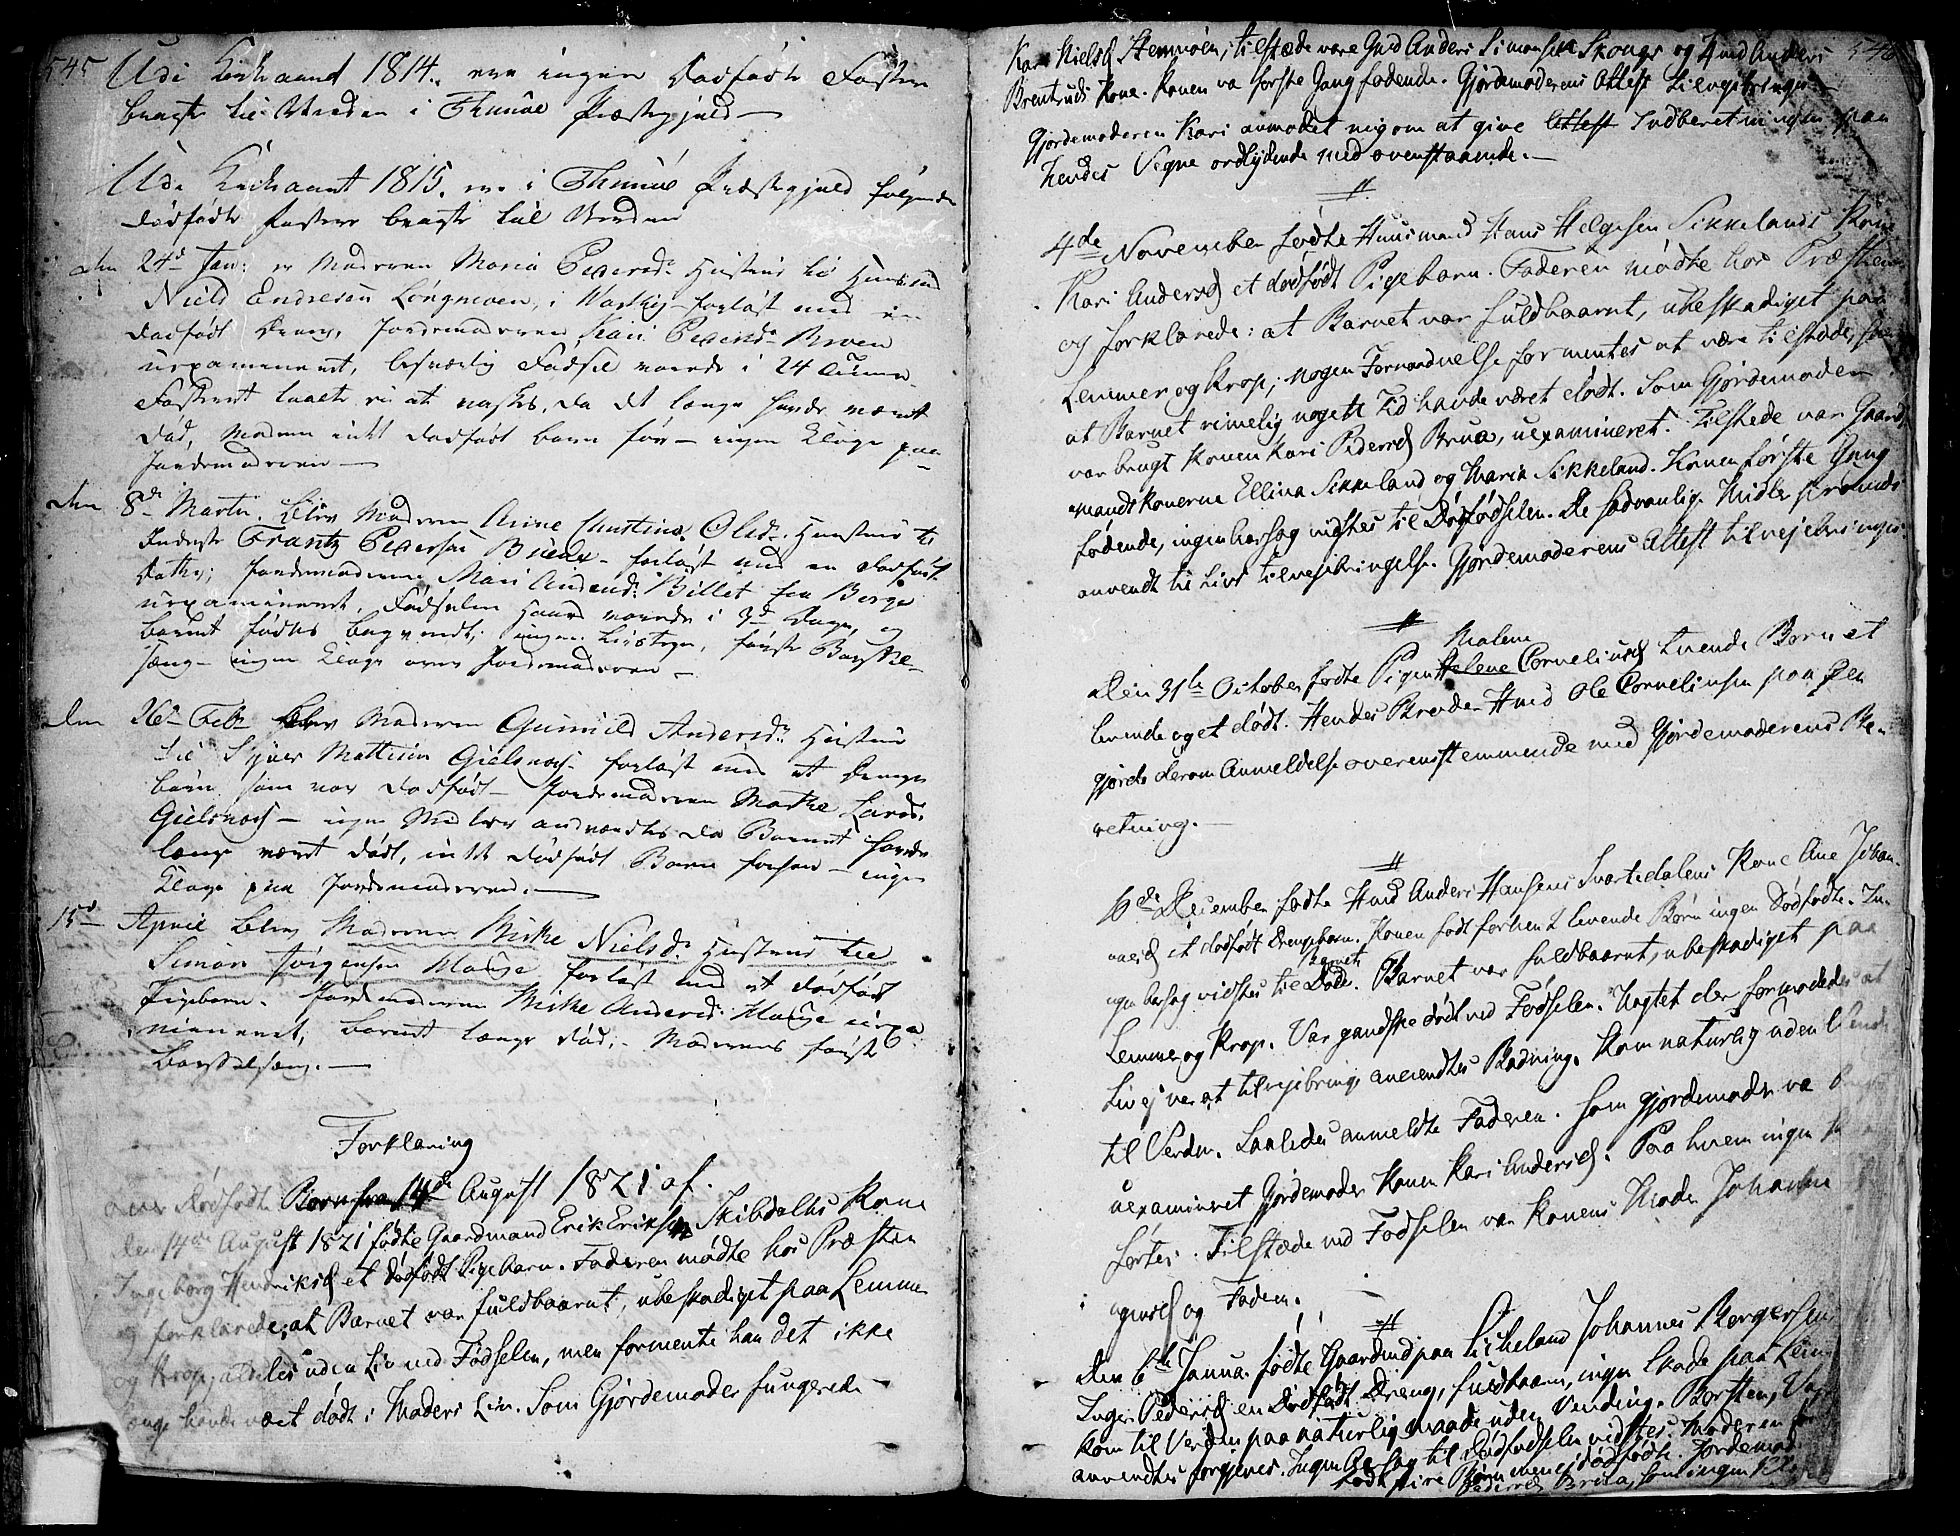 545
Udi Kirkeaaret 1814. ere ingen dødfødte Foster
bragte til Verden i Thunøe Præstegjeld —
Udi Kirkeaaret 1815. ere i Thunøe Præstegjeld følgende
dødfødte Fostere bragte til Verden
den 24de Jan: er Moderen Maria Pedersdr. Hustrue til Huusmd
Niels Endresen Longmoen, i forløst med en
dødfødt Dreng, Jordemoderen Kari Pedersdr. Broen
uexamineret, besværlig Fødsel varede i 24 Timer
Fosteret ei at da det længe havde været
død, Moderen intet dødfødt barn før — ingen Klage paa
Jordemoderen —
den 8de Martii. blev Moderen Anne Christine Olsdr. Hustrue til
Frantz Pedersen forløst med en dødfødt
Datter; Jordemoderen Mari Andersdr. Billet fra Berge
uexamineret. Fødselen haard varede i 3de Dage, og
barnet fødtes bagvendt; ingen Livstegn, første Barsel-
sæng — ingen Klage over Jordemoderen —
den 26de Febr blev Moderen Gunnild Andersdr. Hustrue
til Mathias Gielsnæs forløst med et Drenge
barn som var dødfødt — Jordemoderen Marthe Larsdr.
Gielsnæs — ingen Midler anvendtes da Barnet havde
længe været dødt, intet dødfødt Barn forhen — ingen
Klage paa Jordemoderen. —
15de April blev Moderen Birthe Nielsdr. Hustrue til
Simon Jørgensen Hauge forløst med et dødfødt
Pigebarn. Jordemoderen Birthe Andersdr. Hauge uexa
mineret, barnet længe død, — Moderens første
Barselsæng. —
Forklaring
over dødfødte Børn fra 14de August 1821 af.
den 14de August 1821 fødte Gaardmand Erik Eriksen Skibdalts Kone
Ingeborg Hendriksd et dødfødt Pigebarn. Faderen mødte hos Præsten
og forklarede; at Barnet var fuldbaarnt, ubeskadiget paa Lemmer
og Krop, aldeles uden Liv ved Fødselen, men formente han det ikke
længe havde været dødt i Moders Liv. Som Gjordemoder fungerede
546
Kari Nielsd Stenmoen, tilstæde vare Gmd Anders Simonsen Skougs og Hmd Anders
Brentruds Kone. Konen va første Gang fødende. Gjordemoderens Attest tilvejebringes —
Gjordemoderen Kari anmodet mig om at give Attest Indberetningen paa
hendes Vegne ordlydende med ovenstaaende. —
4de November fødte Huusmand Hans Helgesen Sikkelands Kone
Kari Andersd et dødfødt Pigebarn. Faderen mødte hos Præsten
og forklarede: at Barnet var fuldbaarnt, ubeskadiget paa
Lemmer og Krop; nogen Forraadnelse formentes at være tilstæde, saa
at Barnet rimelig nogen Tid havde været dødt. Som Gjordemoder
var brugt Konen Kari Pedersd Brua, uexamineret. Tilstede var Gaard
mandskonerne Ellina Sikkeland og Maria Sikkeland. Konen første Gang
fødende, ingen Aarsag vidstes til Dødfødselen. De sædvanlige Midler
anvendt til Livs tilvejebringelse. Gjordemoderens Attest tilvejebringes.
Malene
Den 31te October fødte Pigen Helene Corneliusd tvende Børn et
levende og et dødt. Hendes Broder Hmd Ole Corneliusen paa
gjorde derom Anmeldelse overensstemmende med Gjordemoderens Be-
retning. —
16de December fødte Hmd Anders Hansens Svartedalens Kone Ane Johan-
nesd et dødfødt Drengebarn. Konen født forhen 2 levende Børn ingen Dødfødte. In-
gen Aarsag vidstes til Barnets Død. Barnet var fuldbaarnt, ubeskadiget paa
Lemmer og Krop. Var gandske dødt ved Fødselen. Uagtet der formodedes at
Liv ej var at tilvejebringe anvendtes Badning. Kom naturlig uden
til Verden. Saaledes anmeldte Faderen. Som gjordemoder va
uexamineret Gjordemoder Konen Kari Andersd. Paa hvem ingen
førtes. Tilstæde ved Fødselen var Konens Moder Johanne
og Faderen.
Den 6te Januar fødte Gaardmd paa Sikkeland Johannes Bergersens
Inger Pedersd en Dødfødt Dreng, fuldbaaren, ingen Skade paa Lem
kom til Verden paa naturlig maade uden Vending. Børsten,
anvendtes forgjeves. Ingen Aarsag til Dødfødselen vidstes. Moderen
født fire Børn men ej dødfødt. Jordemod
Pedersd Brua, som ingen